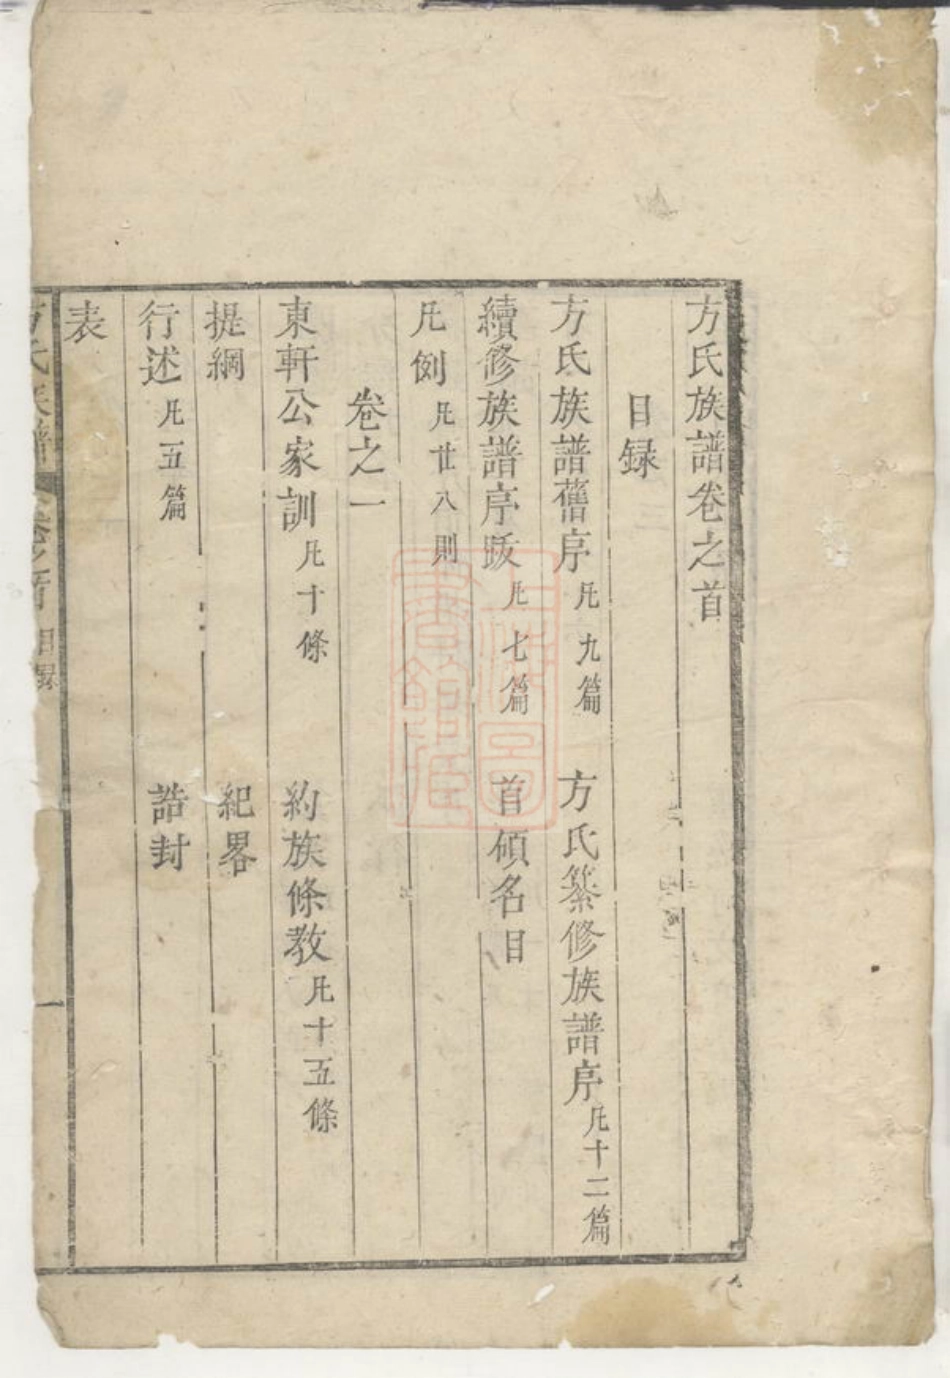 方氏族譜卷之首
目録
方氏族譜舊序 凡九篇 方氏纂修族譜序 凡十二篇
續修族譜序跋 凡七篇 首碩名目
凡例 凡廿八則
卷之一
東軒公家訓 凡十條 約族條教 凡十五條
提綱 紀畧
行述 凡五篇 誥封
表
方氏族譜 卷之首 目録 一
上海圖書館藏